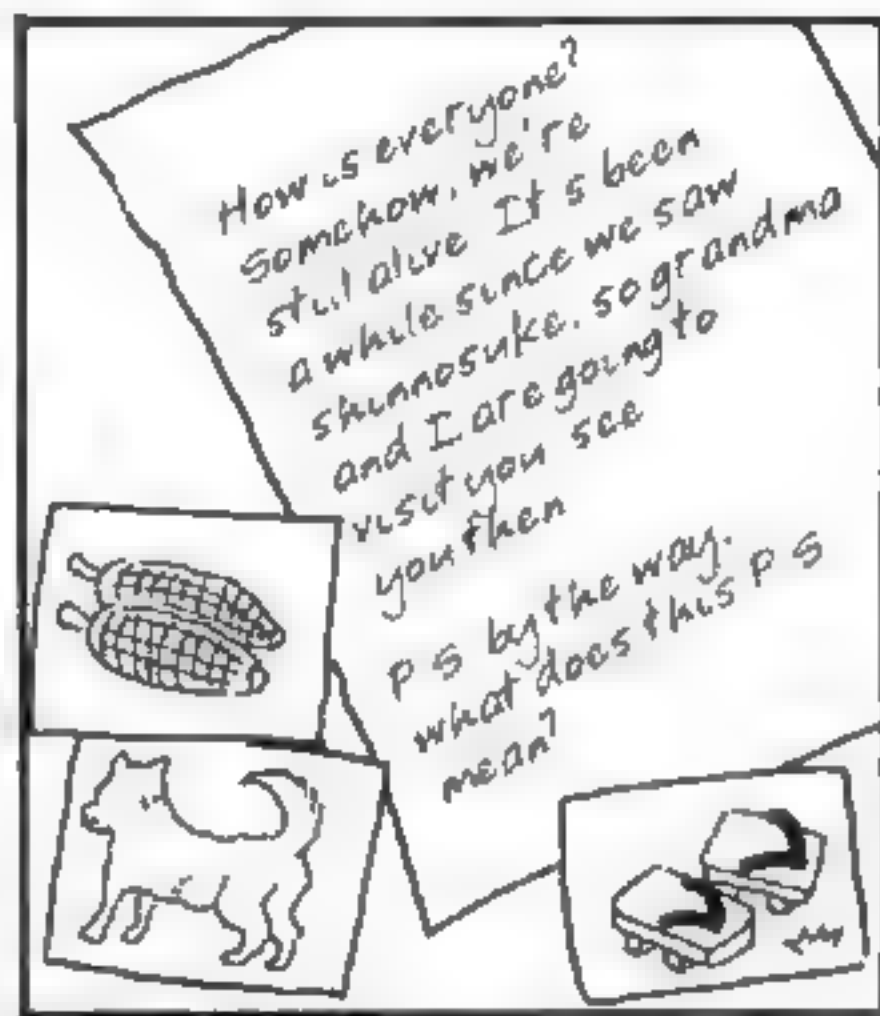 How is everyone?
Somehow, we're
still alive It's been
a while since we saw
shinnosuke. so grandma
and I are going to
visit you see
you then
PS by the way.
what does this PS
mean?